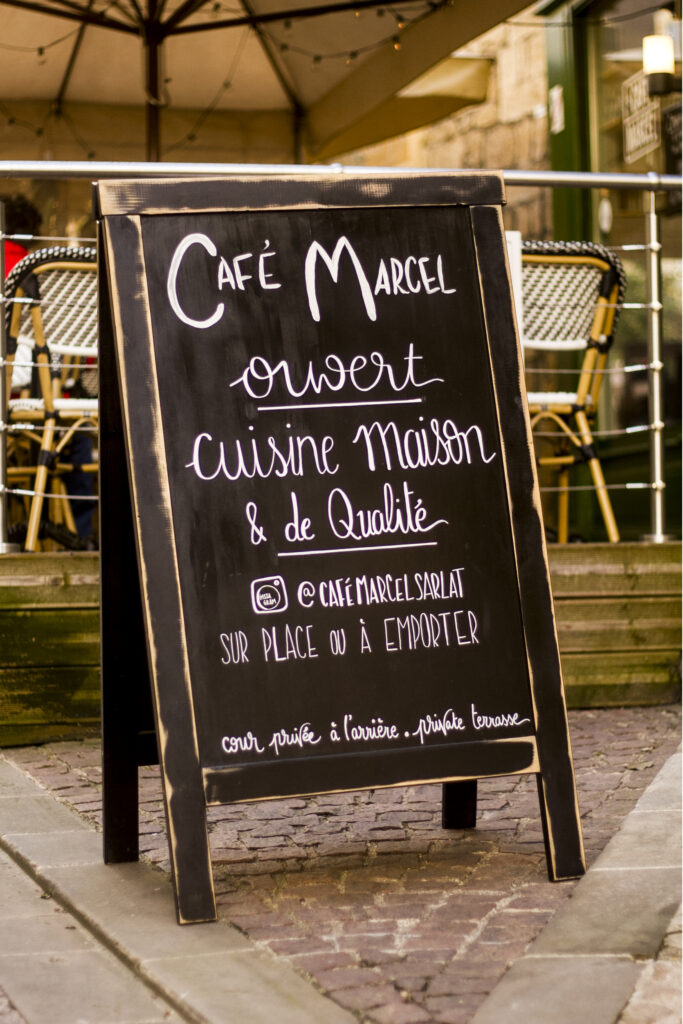 Café Marcel
ouvert
cuisine maison
& de Qualité
INSTA GRAM @CAFÉMARCELSARLAT
SUR PLACE OU À EMPORTER
cour privée à l'arrière. private terrasse